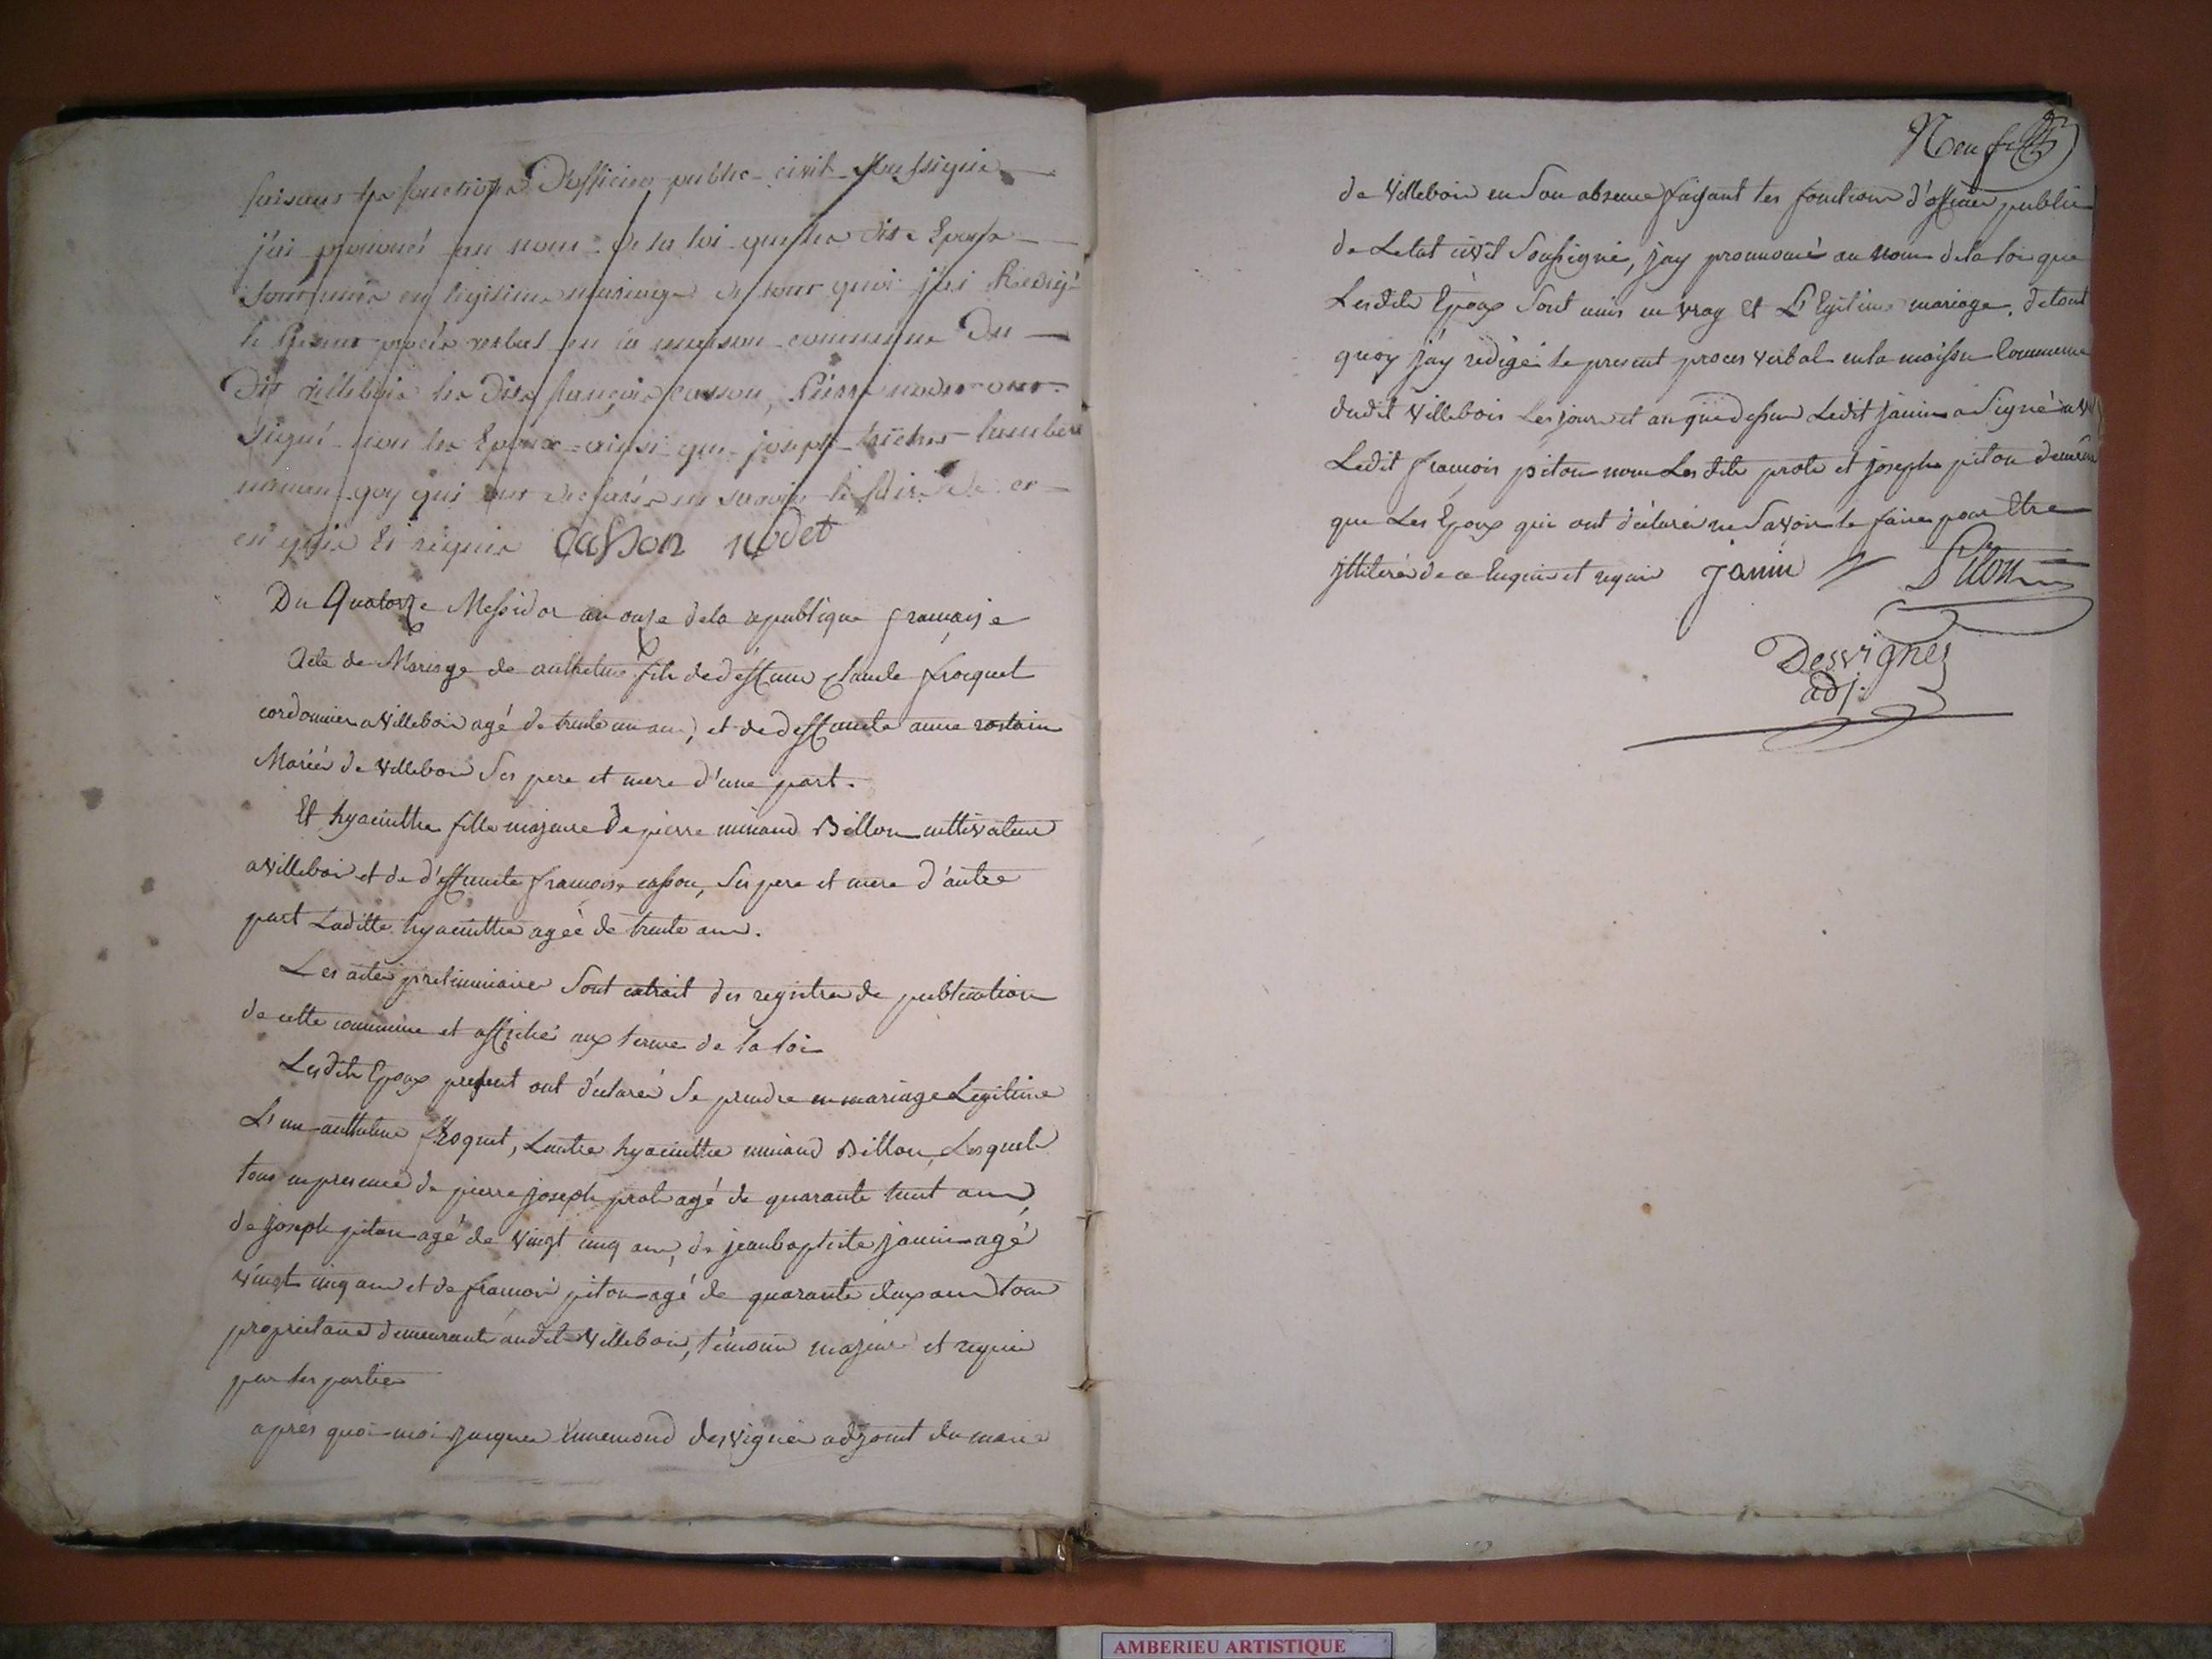 faisant les fonctions d'officier public civil soussigné
j'ai prononcé au nom de la loi que les dits Epoux
sont unis en legitime mariage de tout quoi j'ai Redigé
le Present procès verbal en la maison commune Du
Dit villebois les dits françois casson, Pierre nodet ont
signé non les Epoux ainsi que joseph lambert
goy qui ont declarés ne savoir le faire de ce
enquis et requis Casson nodet
Du Quatorze Messidor an onze dela republique francaise
Acte de Mariage de anthelme fils de deffunt Claude froquet
cordonnier a Villebois agé de trente un ans, et de deffunte anne rostain
Mariés de Villebois Ses pere et mere d'une part.
Et hyacinthe fille majeure De pierre minand Billon cultivateur
a Villebois et de d'effunte francoise casson, Ses pere et mere d'autre
part Laditte hyacinthe ageé de trente ans.
Les actes preliminaires Sont extrait des registres de publication
de cette commune et affichés aux termes de la loi
Lesdits Epoux present ont déclarés Se prendre en mariage Legitime
L'un anthelme froquet, Lautre hyacinthe minand Billon, Lesquels
tous en presence de pierre joseph prost agé de quarante huit ans,
de joseph piton agé de Vingt cinq ans, de jean baptiste janin agé
Vingt cinq ans et de francois piton agé de quarante deux ans tous
proprietaires demeurants audit Villebois, témoins majeurs et requis
par les parties
après quoi moi jacques Ennemond desvignes adjoint du maire
Neuf
de Villebois en Son absence faisant les fonctions d'officier public
de Letat civil Soussigné, jay prononcé au Nom dela loi que
Lesdits Epoux Sont unis en vray et L'Egitime mariage. detout
quoy jáy redigé le present proces verbal en la maison Commune
dudit Villebois Les jours et an que dessus Ledit janin a Signé avec
Ledit francois piton non Lesdits prost et joseph piton demême
que Les Epoux qui ont déclarés ne Savoir le faire pour Etre
jlliterés de ce Enquis et requis Janin Piton
Desvignes
adj.
AMBERIEU ARTISTIQUE